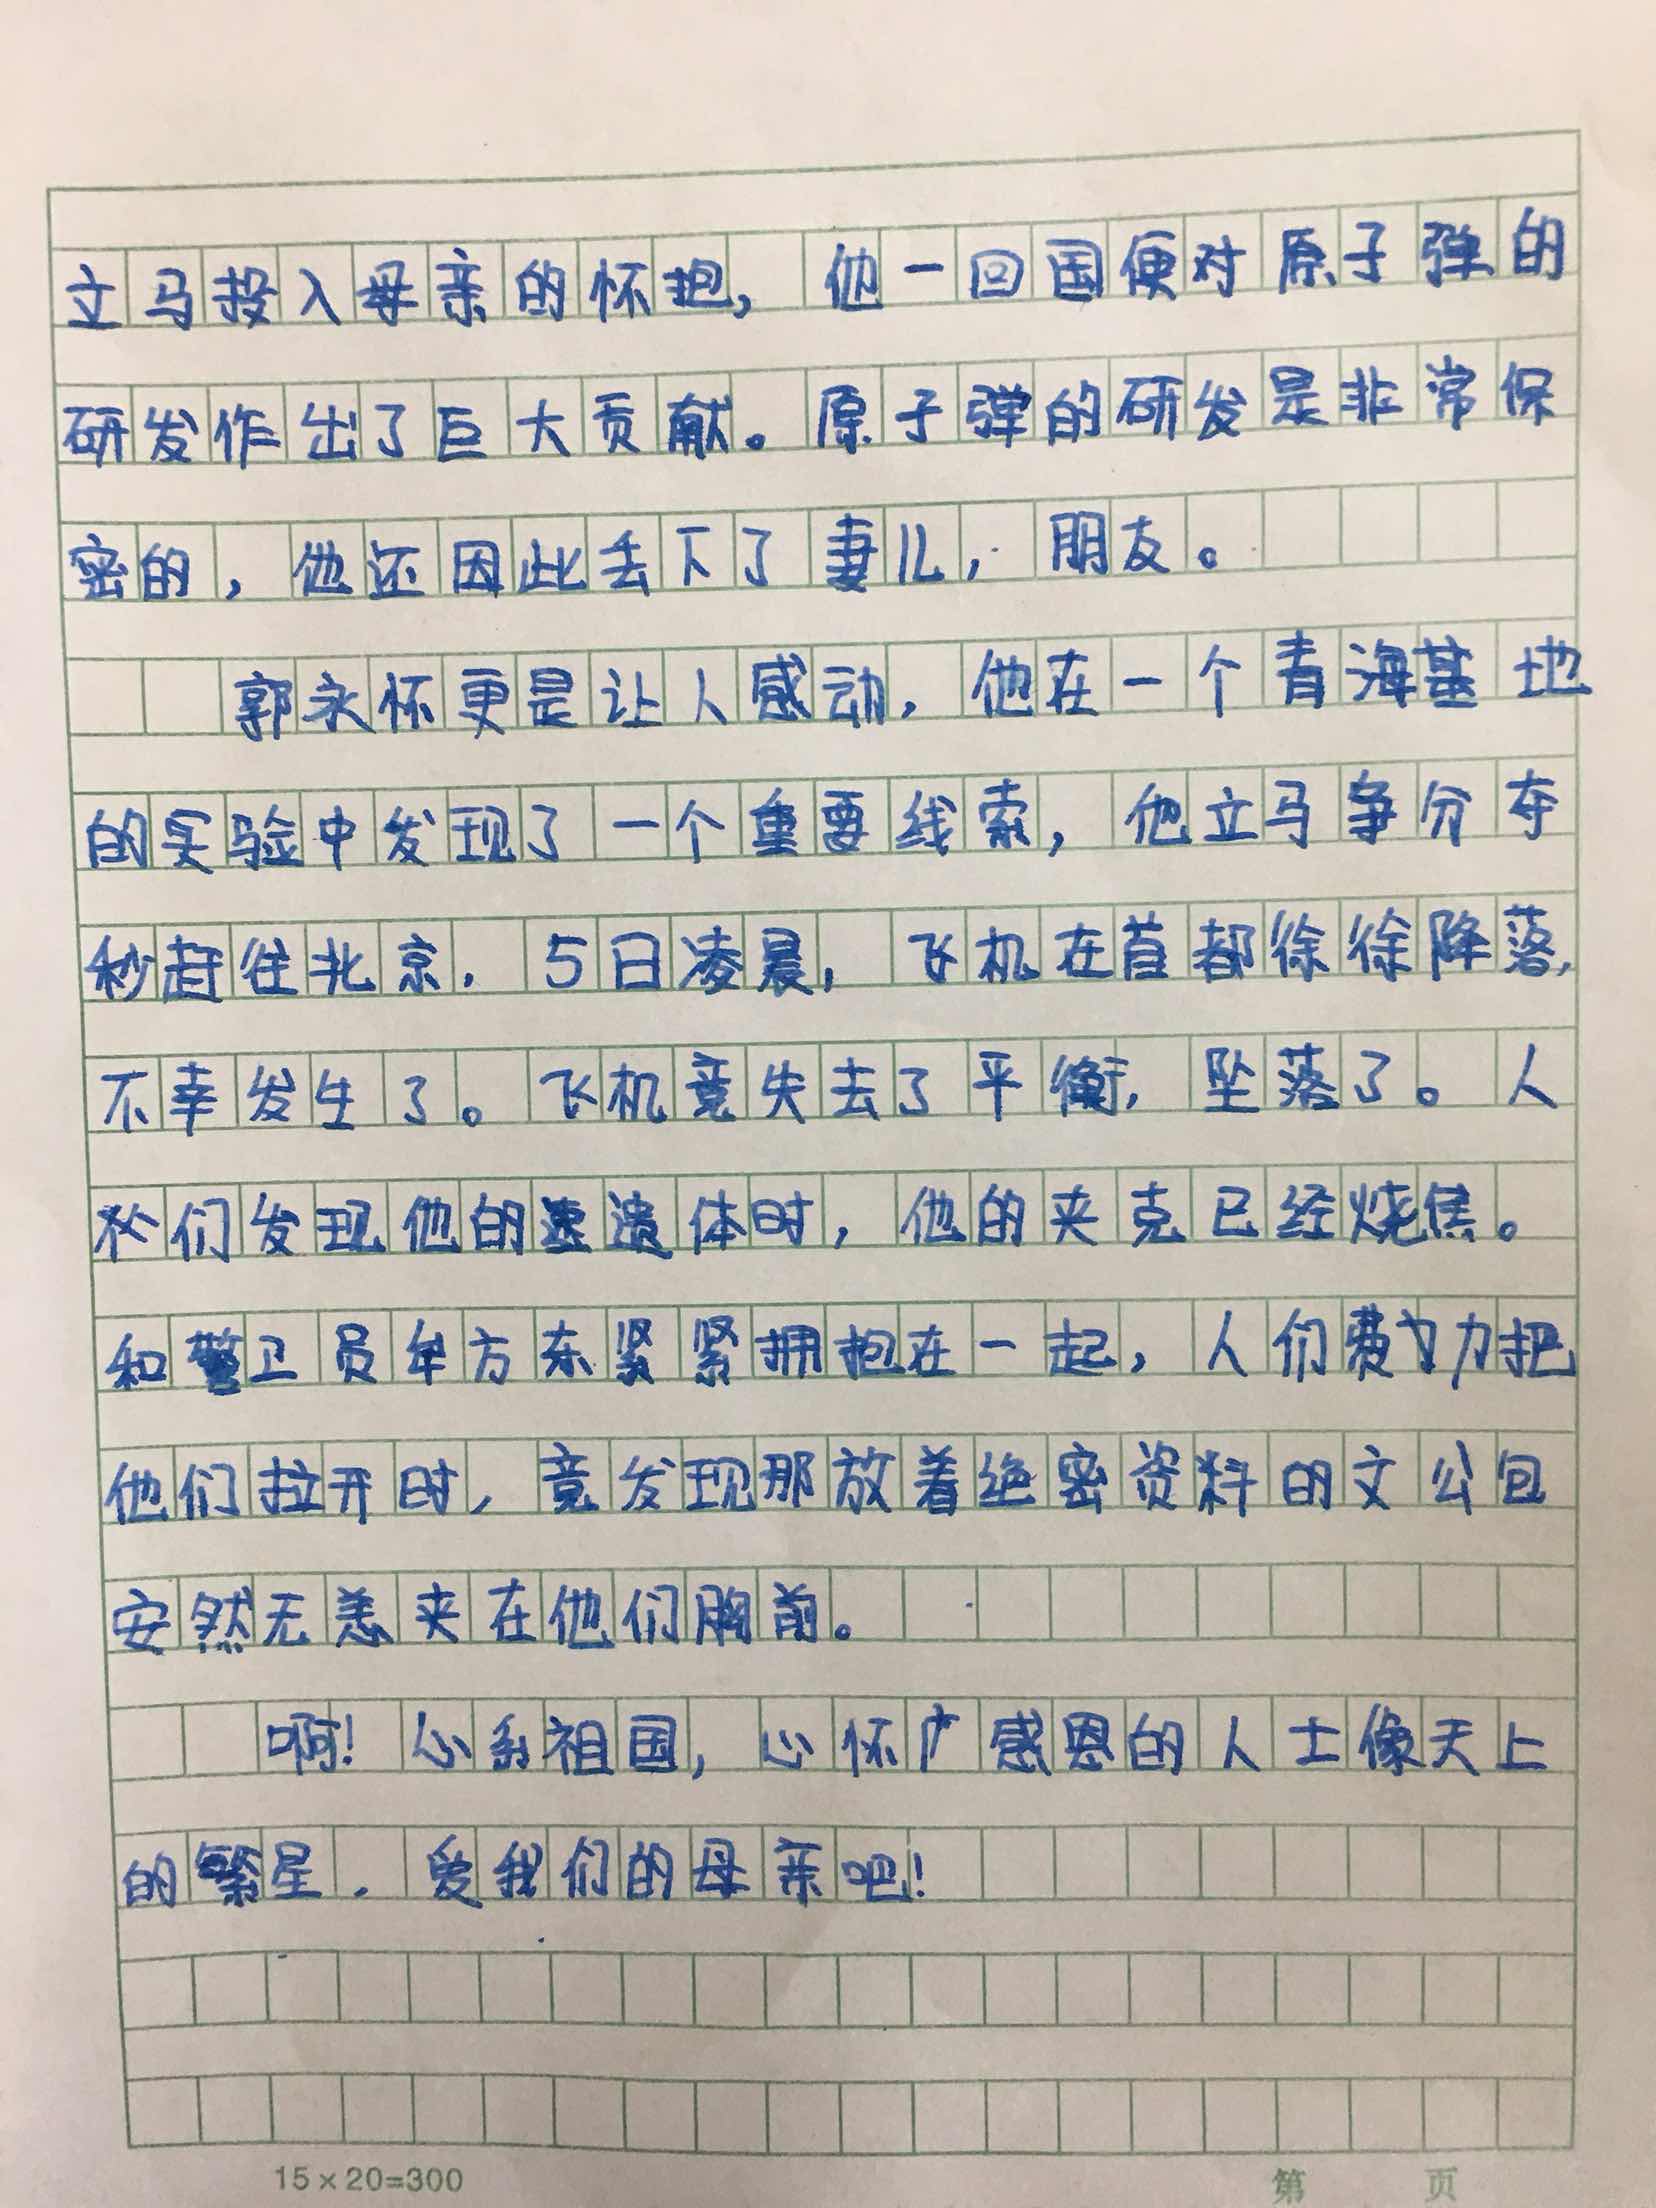 立马投入母亲的怀抱，他一回国便对原子弹的
研发作出了巨大贡献。原子弹的研发是非常保
密的，他还因此丢下了妻儿，朋友。
郭永怀更是让人感动，他在一个青海基地
的实验中发现了一个重要线索，他立马争分夺
秒赶往北京，5日凌晨，飞机在首都徐徐降落，
不幸发生了。飞机竟失去了平衡，坠落了。人
们发现他的遗体时，他的夹克已经烧焦。
和警卫员牟方东紧紧拥抱在一起，人们费力把
他们拉开时，竟发现那放着绝密资料的文公包
安然无恙夹在他们胸前。
啊！心系祖国，心怀广感恩的人士像天上
的繁星，爱我们的母亲吧！
15×20=300
第 页